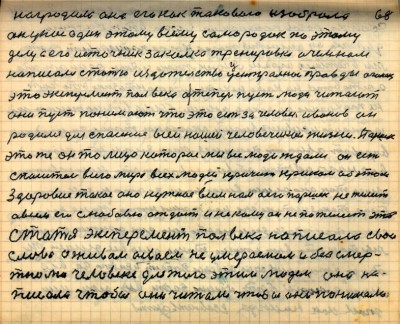 наградила она его как такового изобрела 68
он у ней один этому всему самородок по этому
делу а его источник закалка тренировка о чем нам
написала статью издательство центральной правды огонек
это эксперимент пол века а теперь пусть люди читают
они пусть понимают что это есть за человек иванов он
родился для спасения всей нашей человеческой жизни. Паршек
это те он то лицо которая мы все люди ждали он есть
спаситель всего мира всех людей кричит криком об этом
Здоровие такое оно нужная всем нам а его паршек не таит
а всем его с любовью отдает и никому он не потакает эта
статья эксперимент пол века написала свои
слова оживаем а совсем не умераемом и бессмер-
тно мо человеке для того этим людям она на-
писала чтобы они читали чтобы они понимали